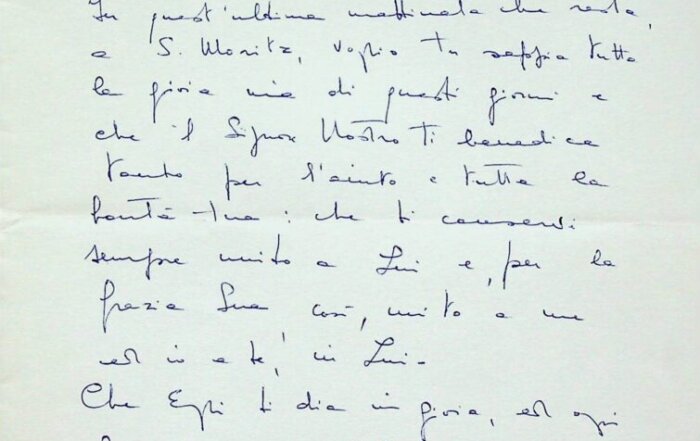 In quest'ultima mattinata che resta,
a S. Moritz, voglio tu sappia tutta
la gioia mia di questi giorni e
che il Signor Nostro Ti benedica
tanto per l'aiuto e tutta la
bontà tua: che ti conservi
sempre unito a Lui e, per la
grazia Sua così, unito a me
ed io a te, in Lui.
Che Egli ti dia in gioia, ed ogni